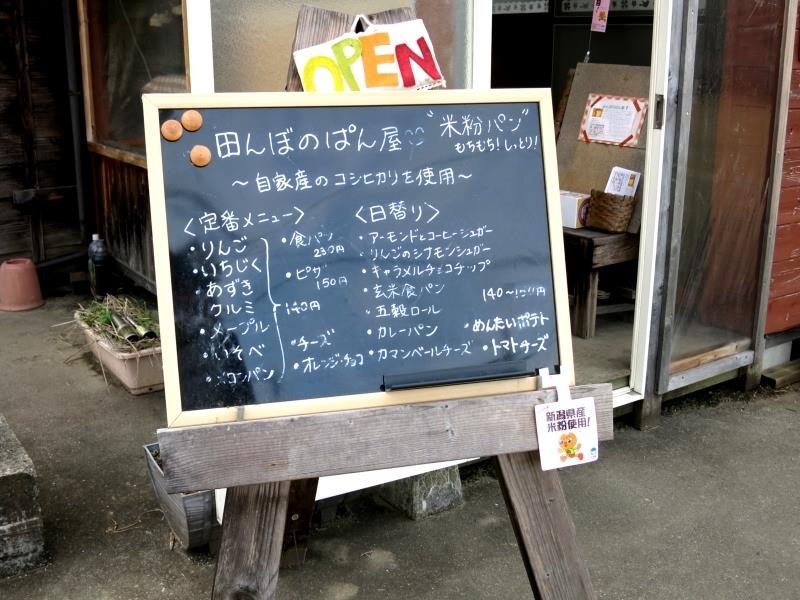 OPEN
田んぼのぱん屋 "米粉パン"
もちもち!しっとり!
～自家産のコシヒカリを使用～
〈定番メニュー〉
・りんご
・いちじく
・あずき
クルミ
・メープル
・いそべ
コンパン
140円
・食パン
230円
・ピザ
150円
・チーズ
・オレンジ・チョコ
〈日替り〉
・アーモンドとコーヒーシュガー
・りんごのシナモンシュガー
・キャラメルチョコチップ
・玄米食パン
・五穀ロール
・カレーパン
・カマンベールチーズ
140～
めんたいポテト
・トマトチーズ
新潟県産
米粉使用!